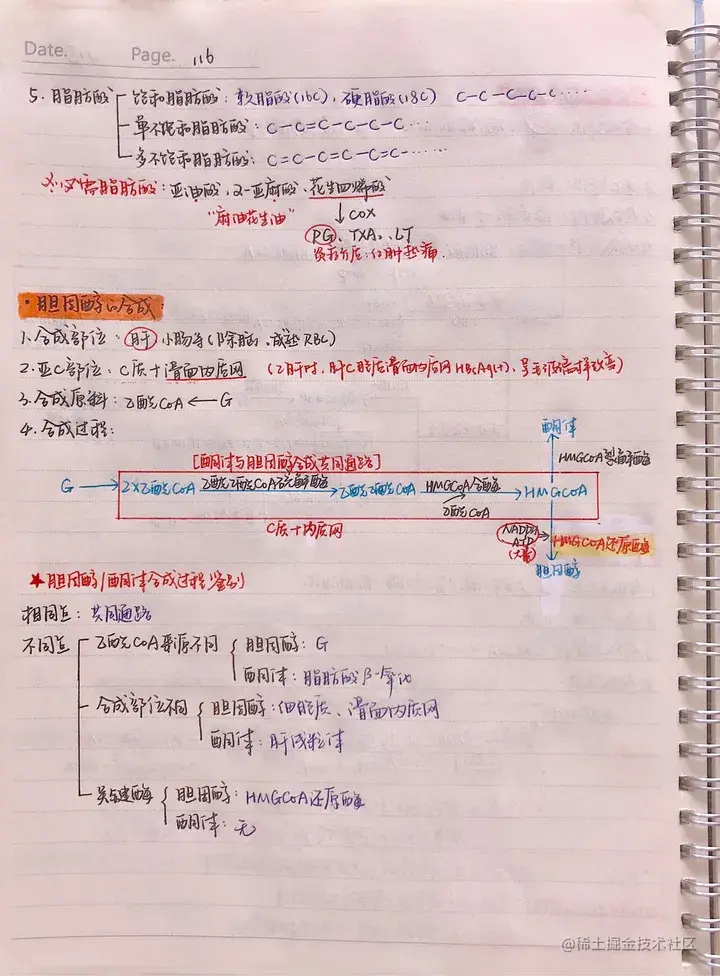 Date.
Page. 116
5. 脂肪酸 饱和脂肪酸：软脂酸(16C)，硬脂酸(18C) C-C-C-C-C····
单不饱和脂肪酸：C-C=C-C-C-C···
多不饱和脂肪酸：C=C-C=C-C=C-·····
必需脂肪酸：亚油酸、α-亚麻酸、花生四烯酸
"麻油花生油" ↓COX
PG、TXA₂、LT
炎症介质：红肿热痛.
·胆固醇的合成
1.合成部位：肝 小肠等(除脑、成熟RBC)
2.亚C部位：C质+滑面内质网 (乙肝时，肝C胞质滑面内质网HBsAg(+)，呈毛玻璃样改变)
3.合成原料：乙酰CoA ← G
4.合成过程：
酮体
HMGCoA裂解酶
[酮体与胆固醇合成共同通路]
G → 2×乙酰CoA 乙酰乙酰CoA硫解酶 乙酰乙酰CoA HMGCoA合酶 → HMGCoA
乙酰CoA
C质+内质网
NADPH
ATP
(大量)
HMGCoA还原酶
胆固醇
★胆固醇/酮体合成过程鉴别
相同点：共同通路
不同点 乙酰CoA来源不同 胆固醇：G
酮体：脂肪酸β-氧化
合成部位不同 胆固醇：细胞质、滑面内质网
酮体：肝线粒体
关键酶 胆固醇：HMGCoA还原酶
酮体：无
@稀土掘金技术社区